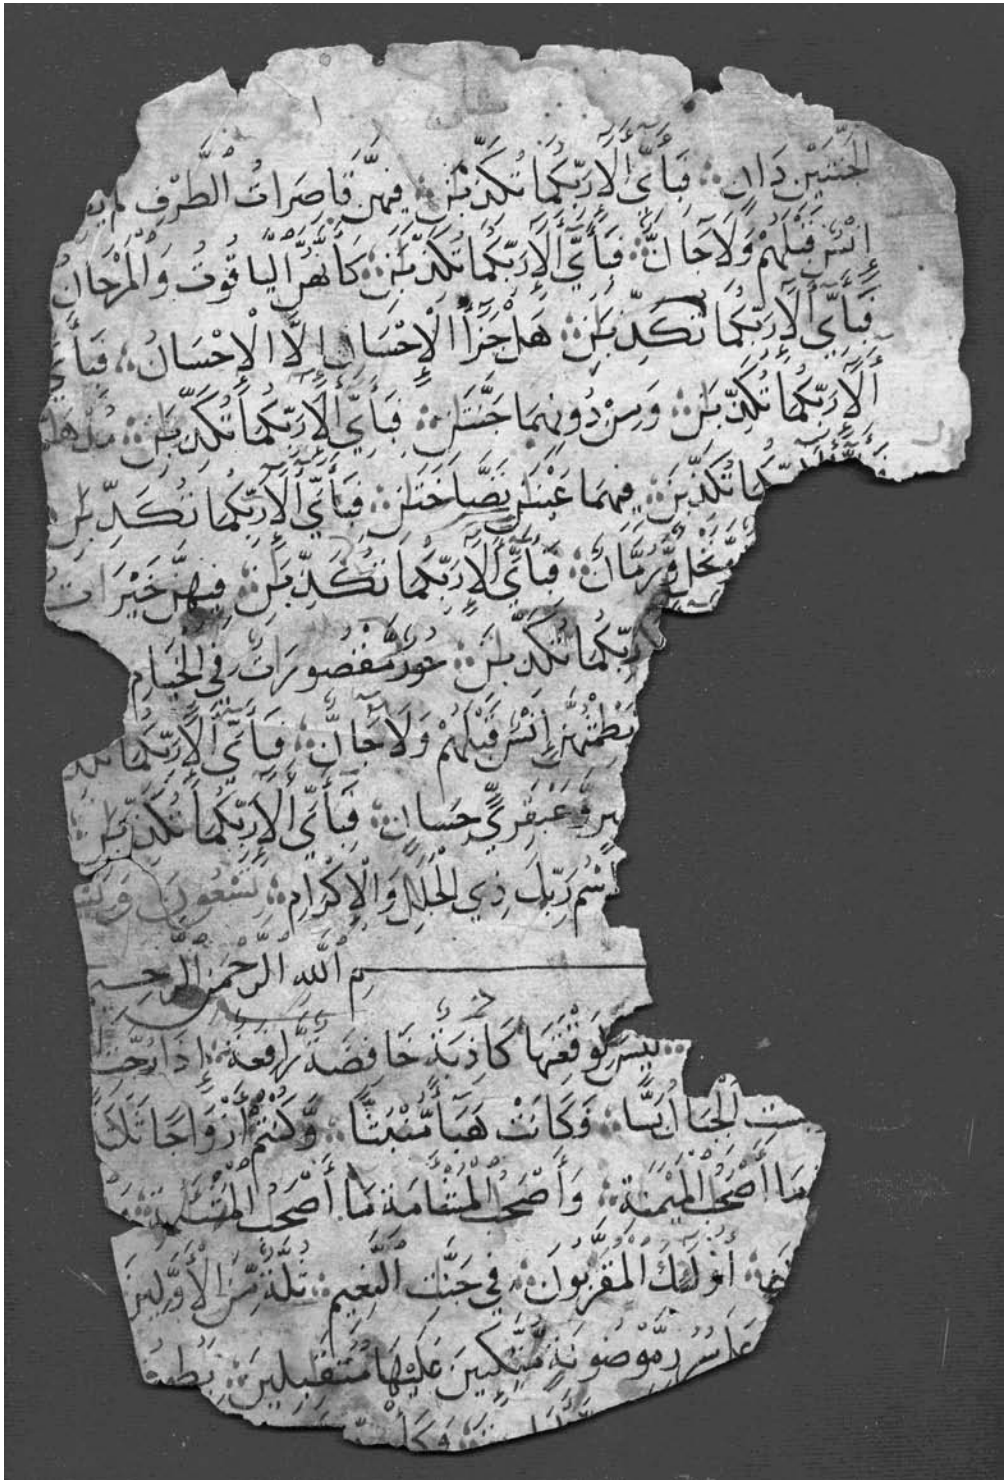 الجَنَّتَيْنِ دَانٍ ۞ فَبِأَيِّ أَلَآءِ رَبِّكُمَا تُكَذِّبَٰنِ ۞ فِيهِنَّ قَاصِرَاتُ الطَّرْفِ لَم
إِنْسٌ قَبْلَهُمْ وَلَا جَآنٌّ ۞ فَبِأَيِّ أَلَآءِ رَبِّكُمَا تُكَذِّبَٰنِ ۞ كَأَنَّهُنَّ اليَاقُوتُ وَالْمَرْجَانُ
فَبِأَيِّ أَلَآءِ رَبِّكُمَا تُكَذِّبَٰنِ ۞ هَلْ جَزَآءُ الْإِحْسَانِ إِلَّا الْإِحْسَانُ ۞ فَبِأَيِّ
أَلَآءِ رَبِّكُمَا تُكَذِّبَٰنِ ۞ وَمِنْ دُونِهِمَا جَنَّتَٰنِ ۞ فَبِأَيِّ أَلَآءِ رَبِّكُمَا تُكَذِّبَٰنِ ۞
تُكَذِّبَٰنِ ۞ فِيهِمَا عَيْنَٰنِ نَضَّاخَتَٰنِ ۞ فَبِأَيِّ أَلَآءِ رَبِّكُمَا تُكَذِّبَٰنِ
وَّنَخْلٌ وَّرُمَّانٌ ۞ فَبِأَيِّ أَلَآءِ رَبِّكُمَا تُكَذِّبَٰنِ ۞ فِيهِنَّ خَيْرَاتٌ
رَبِّكُمَا تُكَذِّبَٰنِ ۞ حُورٌ مَّقْصُورَاتٌ فِي الْخِيَامِ
يَطْمِثْهُنَّ إِنْسٌ قَبْلَهُمْ وَلَا جَآنٌّ ۞ فَبِأَيِّ أَلَآءِ رَبِّكُمَا
عَبْقَرِيٍّ حِسَانٍ ۞ فَبِأَيِّ أَلَآءِ رَبِّكُمَا تُكَذِّبَٰنِ
اسْمُ رَبِّكَ ذِي الْجَلَٰلِ وَالْإِكْرَامِ ۞
اللهِ الرَّحْمَٰنِ الرَّحِيمِ
۞ لَيْسَ لِوَقْعَتِهَا كَاذِبَةٌ خَافِضَةٌ رَّافِعَةٌ ۞ إِذَا رُجَّتِ
الْجِبَالُ بَسًّا ۞ فَكَانَتْ هَبَآءً مُّنْبَثًّا ۞ وَّكُنْتُمْ أَزْوَاجًا ثَلَٰثَةً
مَا أَصْحَٰبُ الْمَيْمَنَةِ ۞ وَأَصْحَٰبُ الْمَشْـَٔمَةِ مَا أَصْحَٰبُ الْمَشْـَٔمَةِ ۞
أُوْلَٰئِكَ الْمُقَرَّبُونَ ۞ فِي جَنَّٰتِ النَّعِيمِ ۞ ثُلَّةٌ مِّنَ الْأَوَّلِينَ
عَلَىٰ سُرُرٍ مَّوْضُونَةٍ مُّتَّكِـِٔينَ عَلَيْهَا مُتَقَٰبِلِينَ ۞